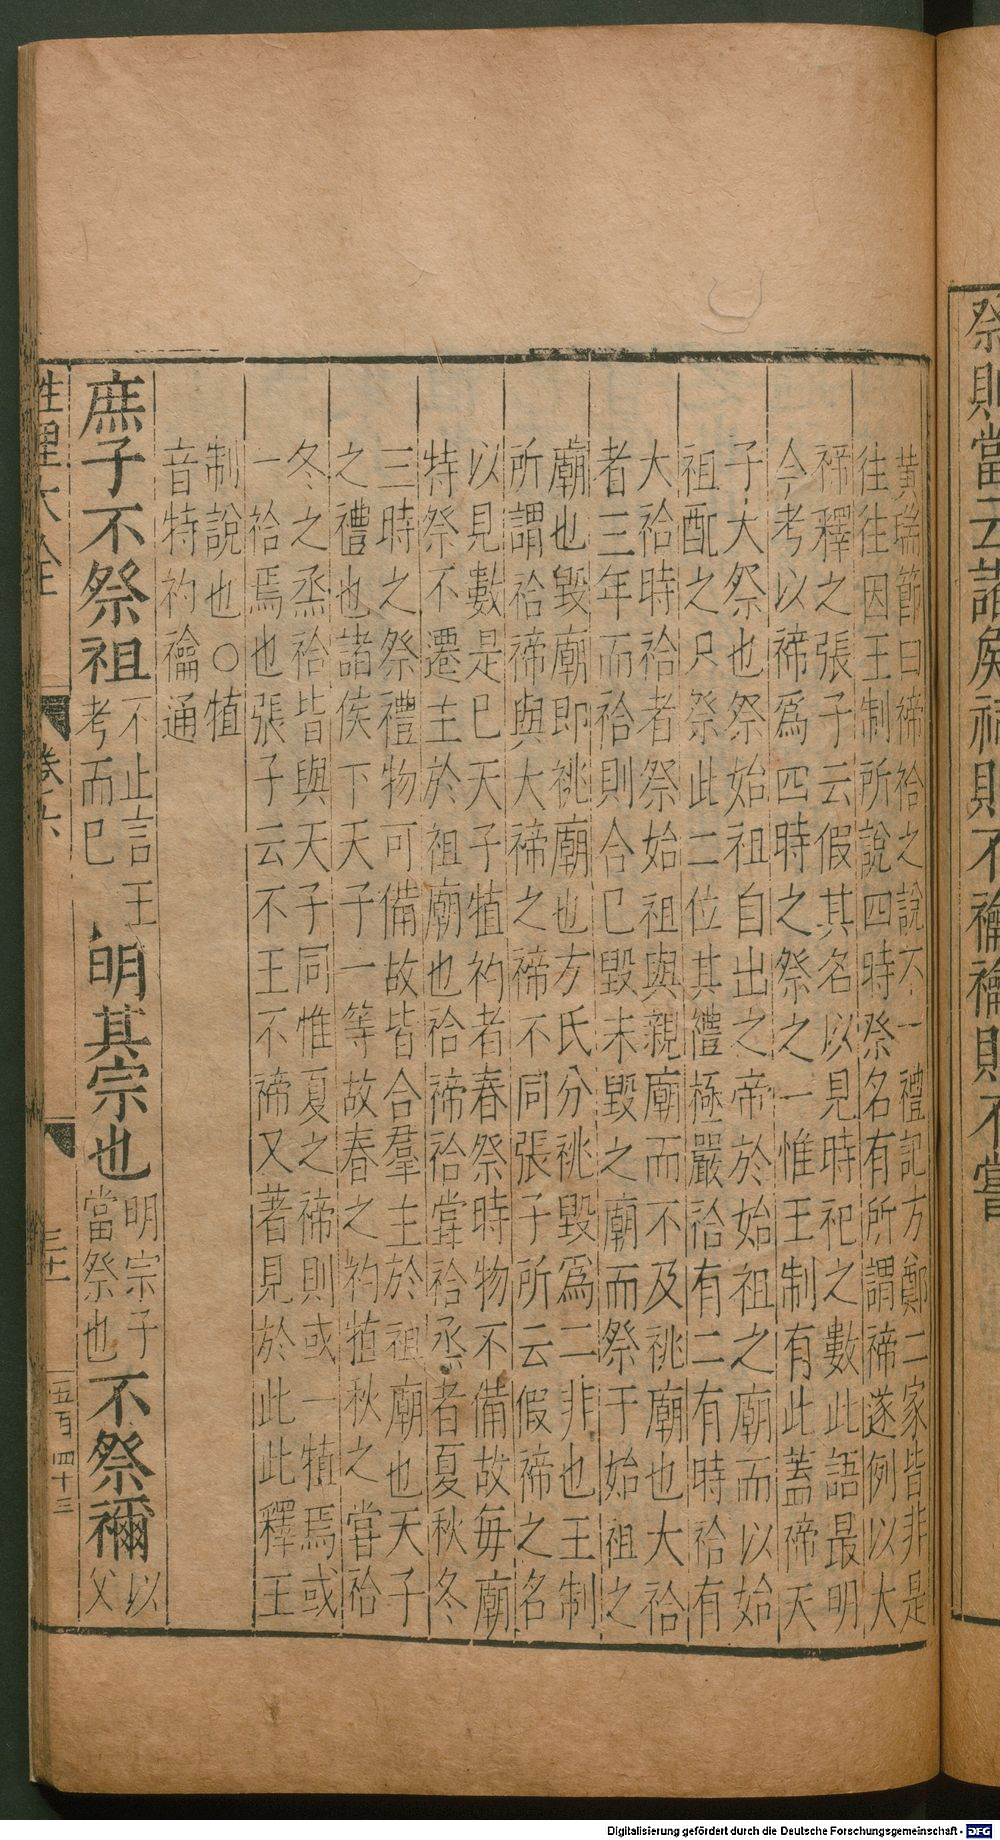 祭則當云諸侯祠則不禴禴則不嘗
黃瑞節曰禘祫之說不一禮記方鄭二家皆非是
往往因王制所說四時祭名有所謂禘遂例以大
禘釋之張子云假其名以見時祀之數此語最明
今考以禘爲四時之祭之一惟王制有此蓋禘天
子大祭也祭始祖自出之帝於始祖之廟而以始
祖配之只祭此二位其禮極嚴祫有二有時祫有
大祫時祫者祭始祖與親廟而不及祧廟也大祫
者三年而祫則合已毀未毀之廟而祭于始祖之
廟也毀廟即祧廟也方氏分祧毀爲二非也王制
所謂祫禘與大禘之禘不同張子所云假禘之名
以見數是已天子犆礿者春祭時物不備故每廟
特祭不遷主於祖廟也祫禘祫嘗祫烝者夏秋冬
三時之祭禮物可備故皆合羣主於祖廟也天子
之禮也諸侯下天子一等故春之礿犆秋之嘗祫
冬之烝祫皆與天子同惟夏之禘則或一犆焉或
一祫焉也張子云不王不禘又著見於此此釋王
制說也○犆
音特礿禴通
庶子不祭祖不止言王考而已明其宗也明宗子當祭也不祭禰以父
性理大全 卷六 三十一 五百四十三
Digitalisierung gefördert durch die Deutsche Forschungsgemeinschaft - DFG